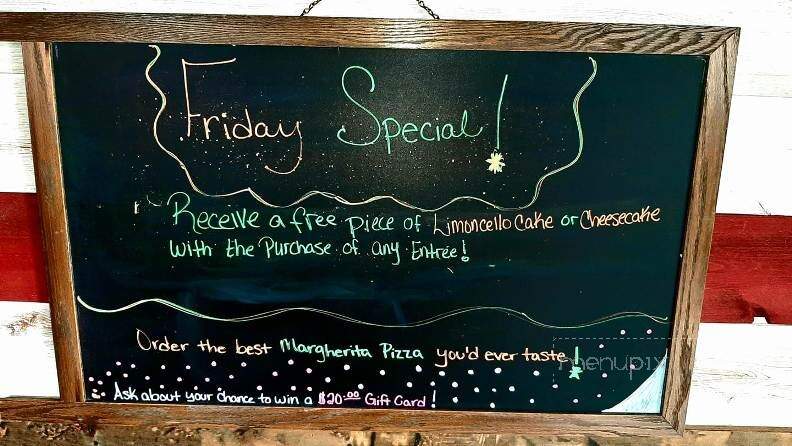 Friday Special!
Receive a free piece of Limoncello Cake or Cheesecake
with the Purchase of any Entrée!
Order the best Margherita Pizza you'd ever taste!
menupix
Ask about your chance to win a $20.00 Gift Card!